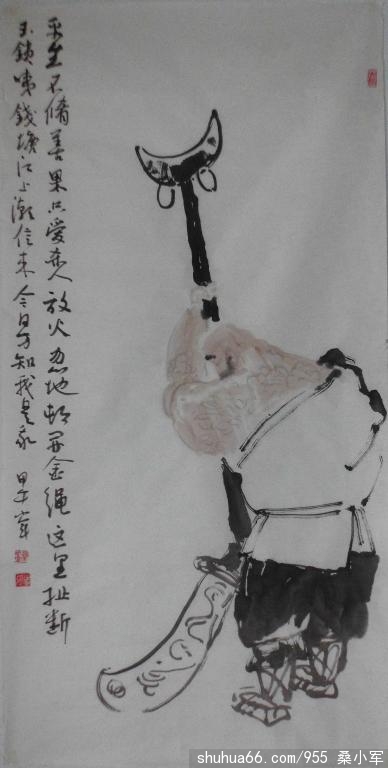 平生不脩善果只爱杀人放火忽地顿开金绳这里扯断
玉锁咦钱塘江上潮信来今日方知我是我
甲午小军
shuhua66.com/955 桑小军